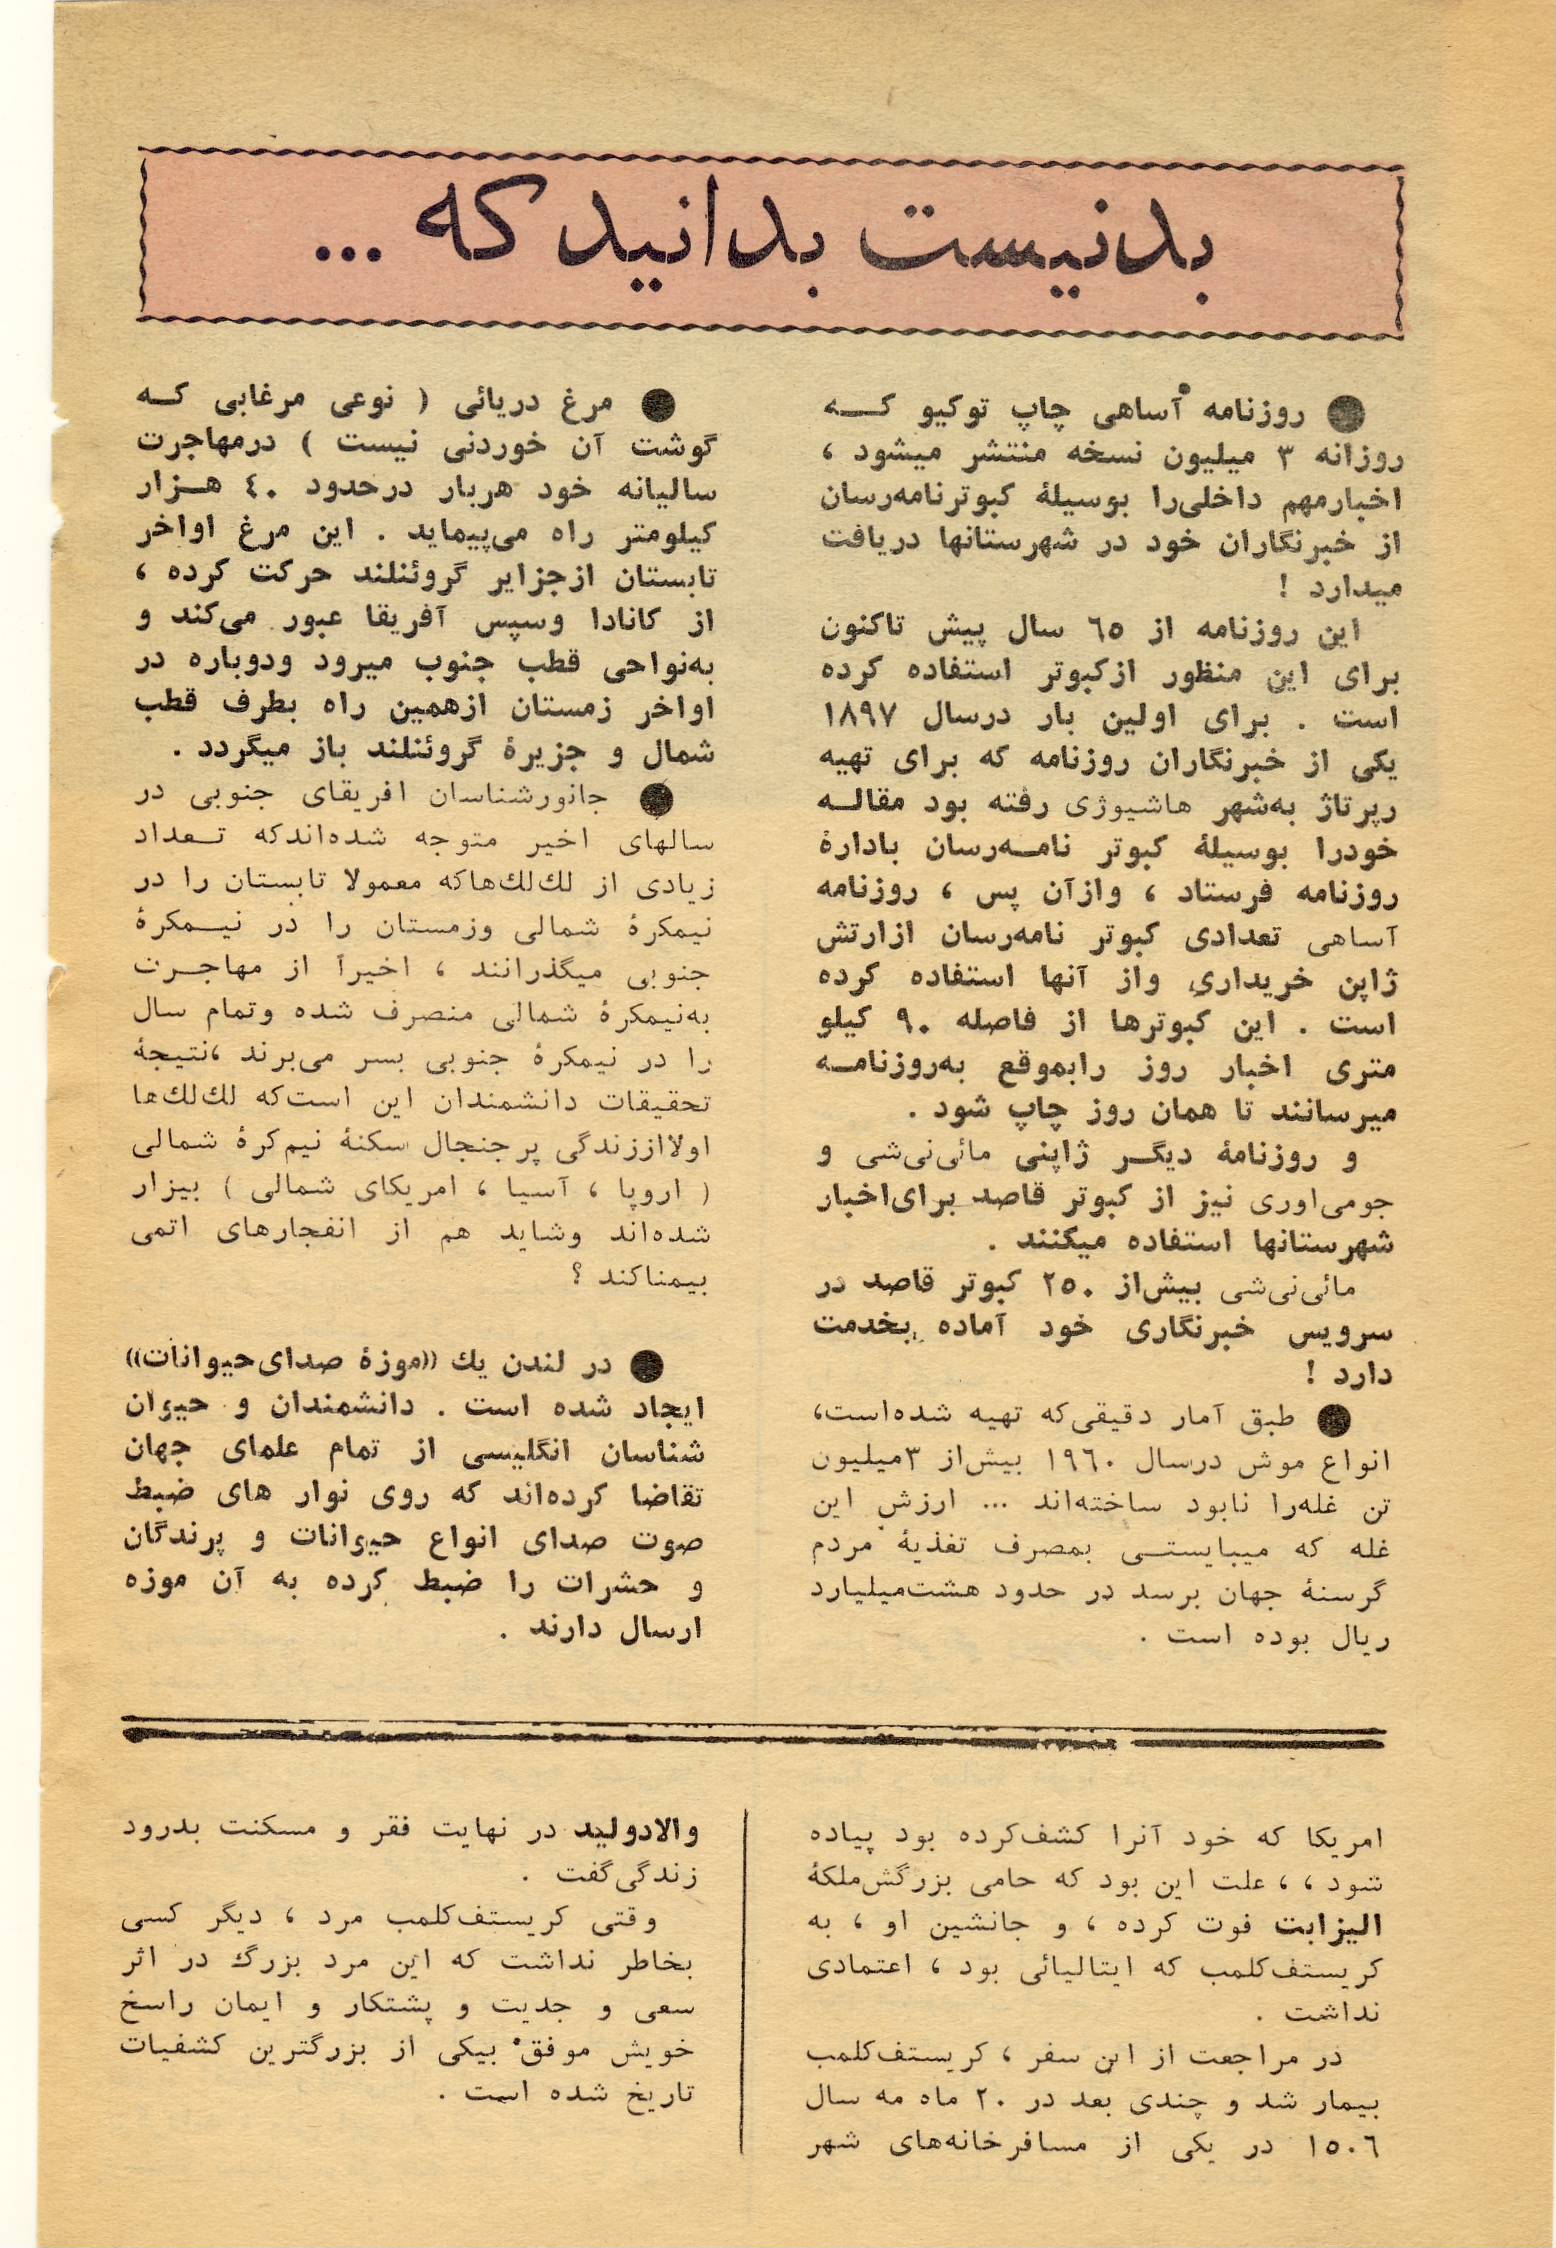 بدنیست بدانید که ...
● روزنامه آساهی چاپ توکیو که
روزانه ۳ میلیون نسخه منتشر میشود ،
اخبارمهم داخلی‌را بوسیلهٔ کبوترنامه‌رسان
از خبرنگاران خود در شهرستانها دریافت
میدارد !
این روزنامه از ٦٥ سال پیش تاکنون
برای این منظور ازکبوتر استفاده کرده
است . برای اولین بار درسال ۱۸۹۷
یکی از خبرنگاران روزنامه که برای تهیه
رپرتاژ به‌شهر هاشیوژی رفته بود مقاله
خودرا بوسیلهٔ کبوتر نامه‌رسان بادارهٔ
روزنامه فرستاد ، وازآن پس ، روزنامه
آساهی تعدادی کبوتر نامه‌رسان ازارتش
ژاپن خریداری واز آنها استفاده کرده
است . این کبوترها از فاصله ۹۰ کیلو
متری اخبار روز رابموقع به‌روزنامه
میرسانند تا همان روز چاپ شود .
و روزنامهٔ دیگر ژاپنی مائی‌نی‌شی و
جومی‌اوری نیز از کبوتر قاصد برای‌اخبار
شهرستانها استفاده میکنند .
مائی‌نی‌شی بیش‌از ۲٥۰ کبوتر قاصد در
سرویس خبرنگاری خود آماده بخدمت
دارد !
● طبق آمار دقیقی‌که تهیه شده‌است،
انواع موش درسال ۱۹٦۰ بیش‌از ۳میلیون
تن غله‌را نابود ساخته‌اند ... ارزش این
غله که میبایستی بمصرف تغذیهٔ مردم
گرسنهٔ جهان برسد در حدود هشت‌میلیارد
ریال بوده است .
● مرغ دریائی ( نوعی مرغابی که
گوشت آن خوردنی نیست ) درمهاجرت
سالیانه خود هربار درحدود ٤۰ هزار
کیلومتر راه می‌پیماید . این مرغ اواخر
تابستان ازجزایر گروئنلند حرکت کرده ،
از کانادا وسپس آفریقا عبور می‌کند و
به‌نواحی قطب جنوب میرود ودوباره در
اواخر زمستان ازهمین راه بطرف قطب
شمال و جزیرهٔ گروئنلند باز میگردد .
● جانورشناسان افریقای جنوبی در
سالهای اخیر متوجه شده‌اندکه تعداد
زیادی از لك‌لك‌هاکه معمولا تابستان را در
نیمکرهٔ شمالی وزمستان را در نیمکرهٔ
جنوبی میگذرانند ، اخیراً از مهاجرت
به‌نیمکرهٔ شمالی منصرف شده وتمام سال
را در نیمکرهٔ جنوبی بسر می‌برند ،نتیجهٔ
تحقیقات دانشمندان این است‌که لك‌لك‌ها
اولااززندگی پرجنجال سکنهٔ نیم‌کرهٔ شمالی
( اروپا ، آسیا ، امریکای شمالی ) بیزار
شده‌اند وشاید هم از انفجارهای اتمی
بیمناکند ؟
● در لندن یك «موزهٔ صدای‌حیوانات»
ایجاد شده است . دانشمندان و حیوان
شناسان انگلیسی از تمام علمای جهان
تقاضا کرده‌اند که روی نوار های ضبط
صوت صدای انواع حیوانات و پرندگان
و حشرات را ضبط کرده به آن موزه
ارسال دارند .
امریکا که خود آنرا کشف‌کرده بود پیاده
شود ، ، علت این بود که حامی بزرگش‌ملکهٔ
الیزابت فوت کرده ، و جانشین او ، به
کریستف‌کلمب که ایتالیائی بود ، اعتمادی
نداشت .
در مراجعت از این سفر ، کریستف‌کلمب
بیمار شد و چندی بعد در ۲۰ ماه مه سال
۱٥۰٦ در یکی از مسافرخانه‌های شهر
والادولید در نهایت فقر و مسکنت بدرود
زندگی‌گفت .
وقتی کریستف‌کلمب مرد ، دیگر کسی
بخاطر نداشت که این مرد بزرگ در اثر
سعی و جدیت و پشتکار و ایمان راسخ
خویش موفق بیکی از بزرگترین کشفیات
تاریخ شده است .